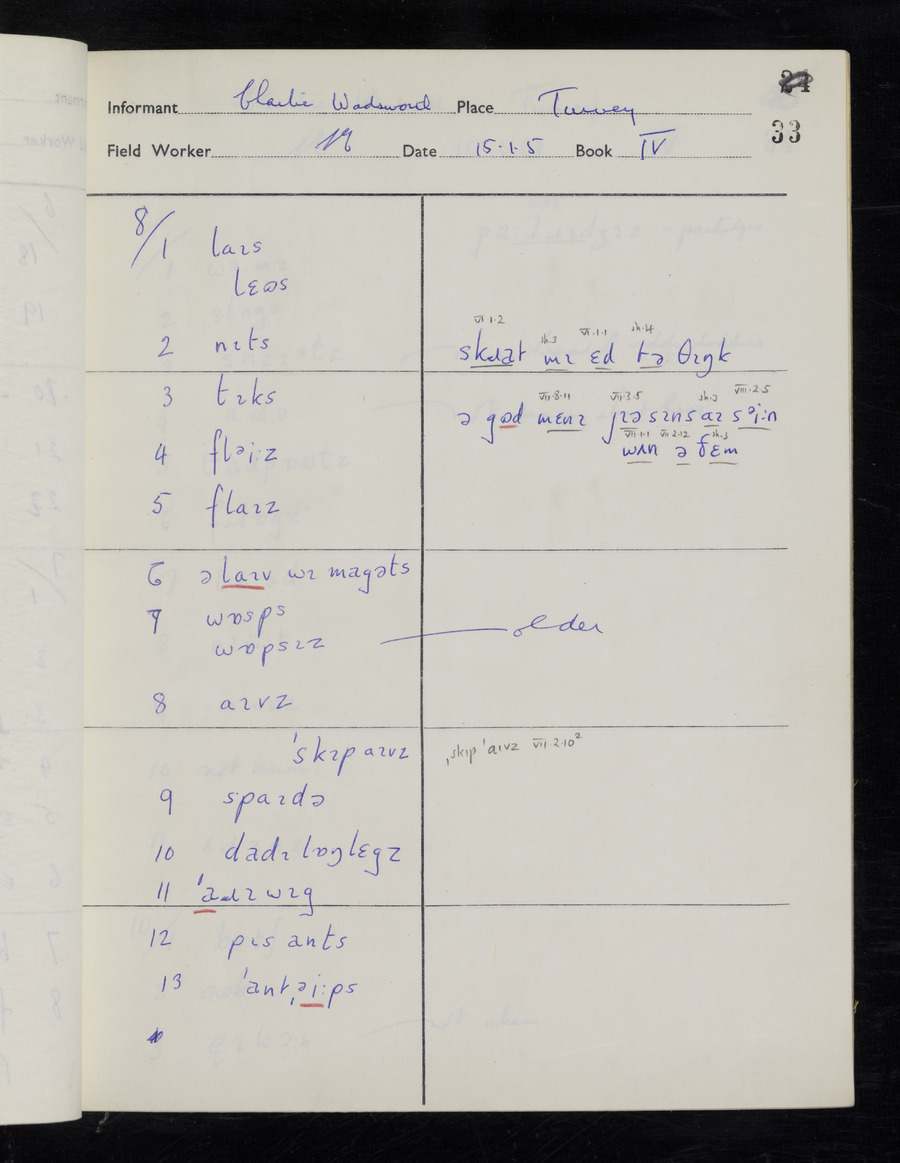 24
33
Informant Charlie Wadsworth Place Turvey
Field Worker Date 15·1·5 Book IV
8/1 laɪs
lɛʊs
2 nɪts
VI·1·2 sh.3 VI·1·1 sh.4
mɪ ɛd tə θɪŋk
3 tɪks
VII·8·11 VII·3·5 sh.3 VIII·2·5
ə gʊd mɛnɪ jɪə sɪns aɪ sᵊi:n
VII·1·1 VII·2·12 sh.3
wʌn ə ðɛm
4 flᵊi:z
5 flaɪz
6 ə laɪv wɪ magəts
7 wɒsps
wɒpsɪz older
8 aɪvz
ˈskɪp aɪvz
ˌskɪp ˈaɪvz VII·2·10²
9 spaɪdə
10 dadɪ lɒŋlɛgz
11 ˈaɹɪwɪg
12 pɪs ants
13 ˈantˌᵊi:ps